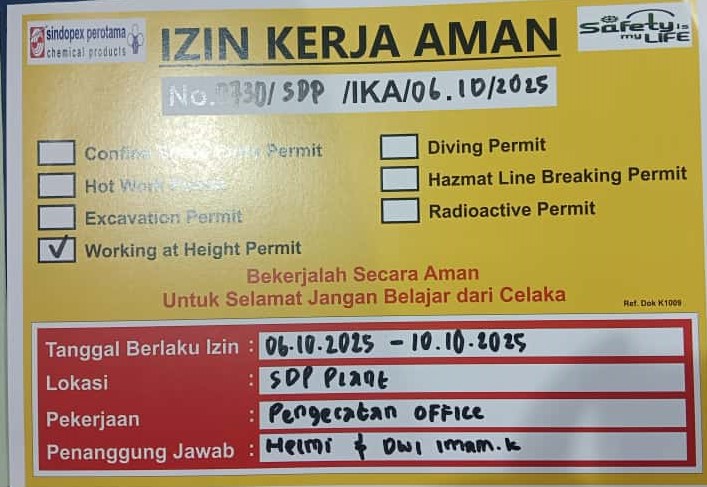 sindopex perotama
chemical products
IZIN KERJA AMAN
Safety is
my LIFE
No.0730/ SDP /IKA/06.10/2025
Confined Space Permit
Diving Permit
Hot Work Permit
Hazmat Line Breaking Permit
Excavation Permit
Radioactive Permit
✓ Working at Height Permit
Bekerjalah Secara Aman
Untuk Selamat Jangan Belajar dari Celaka
Ref. Dok K1009
Tanggal Berlaku Izin : 06.10.2025 - 10.10.2025
Lokasi : SDP Plant
Pekerjaan : Pengecatan OFFICE
Penanggung Jawab : Helmi & Dwi Imam.K